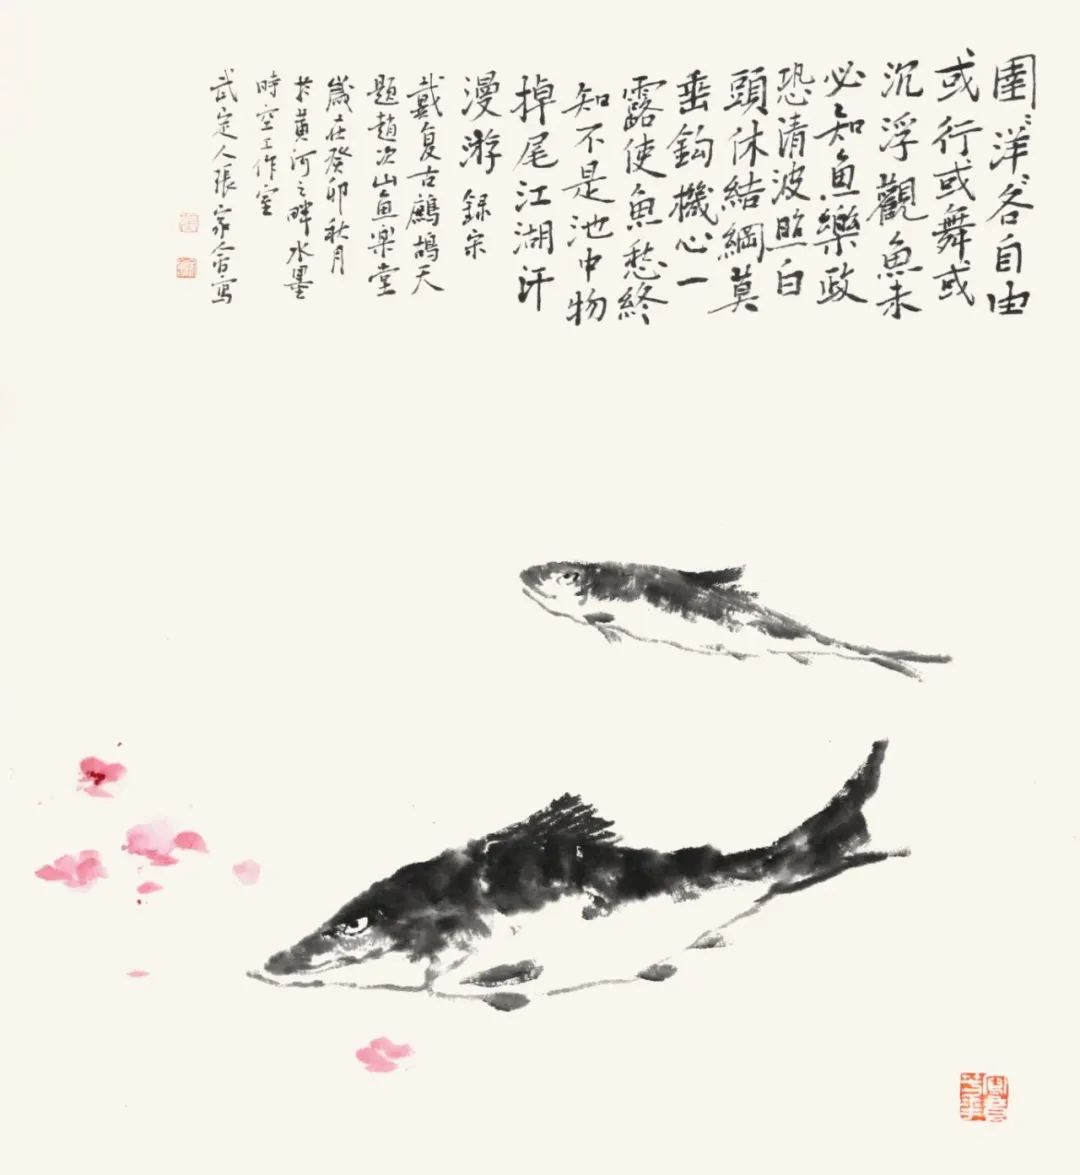 圉〻洋〻各自由
或行或舞或
沉浮觀魚未
必知魚樂政
恐清波照白
頭休結綱莫
垂鈎機心一
露使魚愁終
知不是池中物
掉尾江湖汗
漫游 録宋
戴复古鷓鴣天
題趙次山魚楽堂
歲在癸卯秋月
於黄河之畔水墨
時空工作室
武定人張家寫